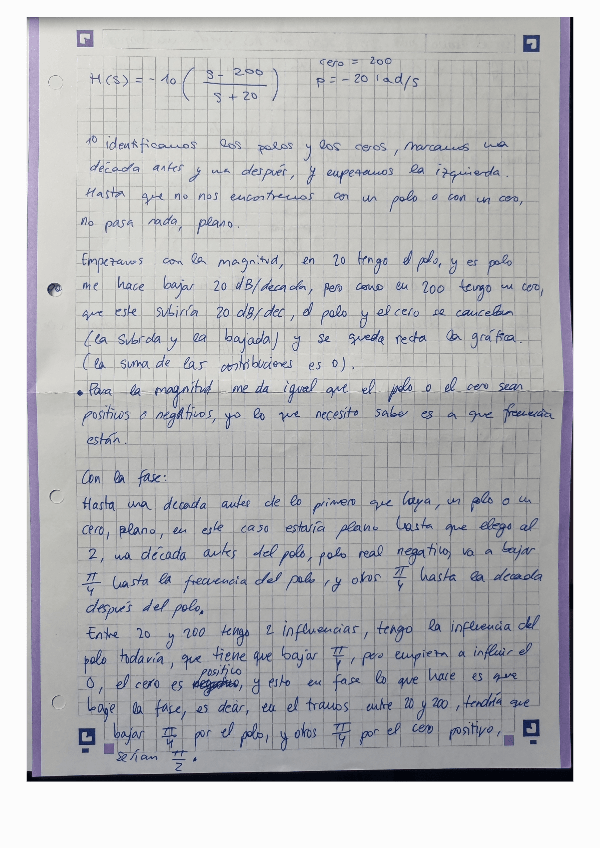 cero = 200
H(s) = -10 ( s - 200 / s + 20 )
p = -20 rad/s
1º identificamos los polos y los ceros, marcamos una
década antes y una después, y empezamos la izquierda.
Hasta que no nos encontremos con un polo o con un cero,
no pasa nada, plano.
Empezamos con la magnitud, en 20 tengo el polo, y es polo
me hace bajar 20 dB/década, pero como en 200 tengo un cero,
que este subiría 20 dB/dec, el polo y el cero se cancelan
(la subida y la bajada) y se queda recta la gráfica.
(la suma de las contribuciones es 0).
• Para la magnitud me da igual que el polo o el cero sean
positivos o negativos, yo lo que necesito saber es a que frecuencia
están.
Con la fase:
Hasta una década antes de lo primero que haya, un polo o un
cero, plano, en este caso estaría plano hasta que llego al
2, una década antes del polo, polo real negativo, va a bajar
π/4 hasta la frecuencia del polo, y otros π/4 hasta la década
después del polo.
Entre 20 y 200 tengo 2 influencias, tengo la influencia del
polo todavía, que tiene que bajar π/4, pero empieza a influir el
0, el cero es positivo, y esto en fase lo que hace es que
baje la fase, es decir, en el tramos entre 20 y 200, tendría que
bajar π/4 por el polo, y otros π/4 por el cero positivo,
serían π/2.